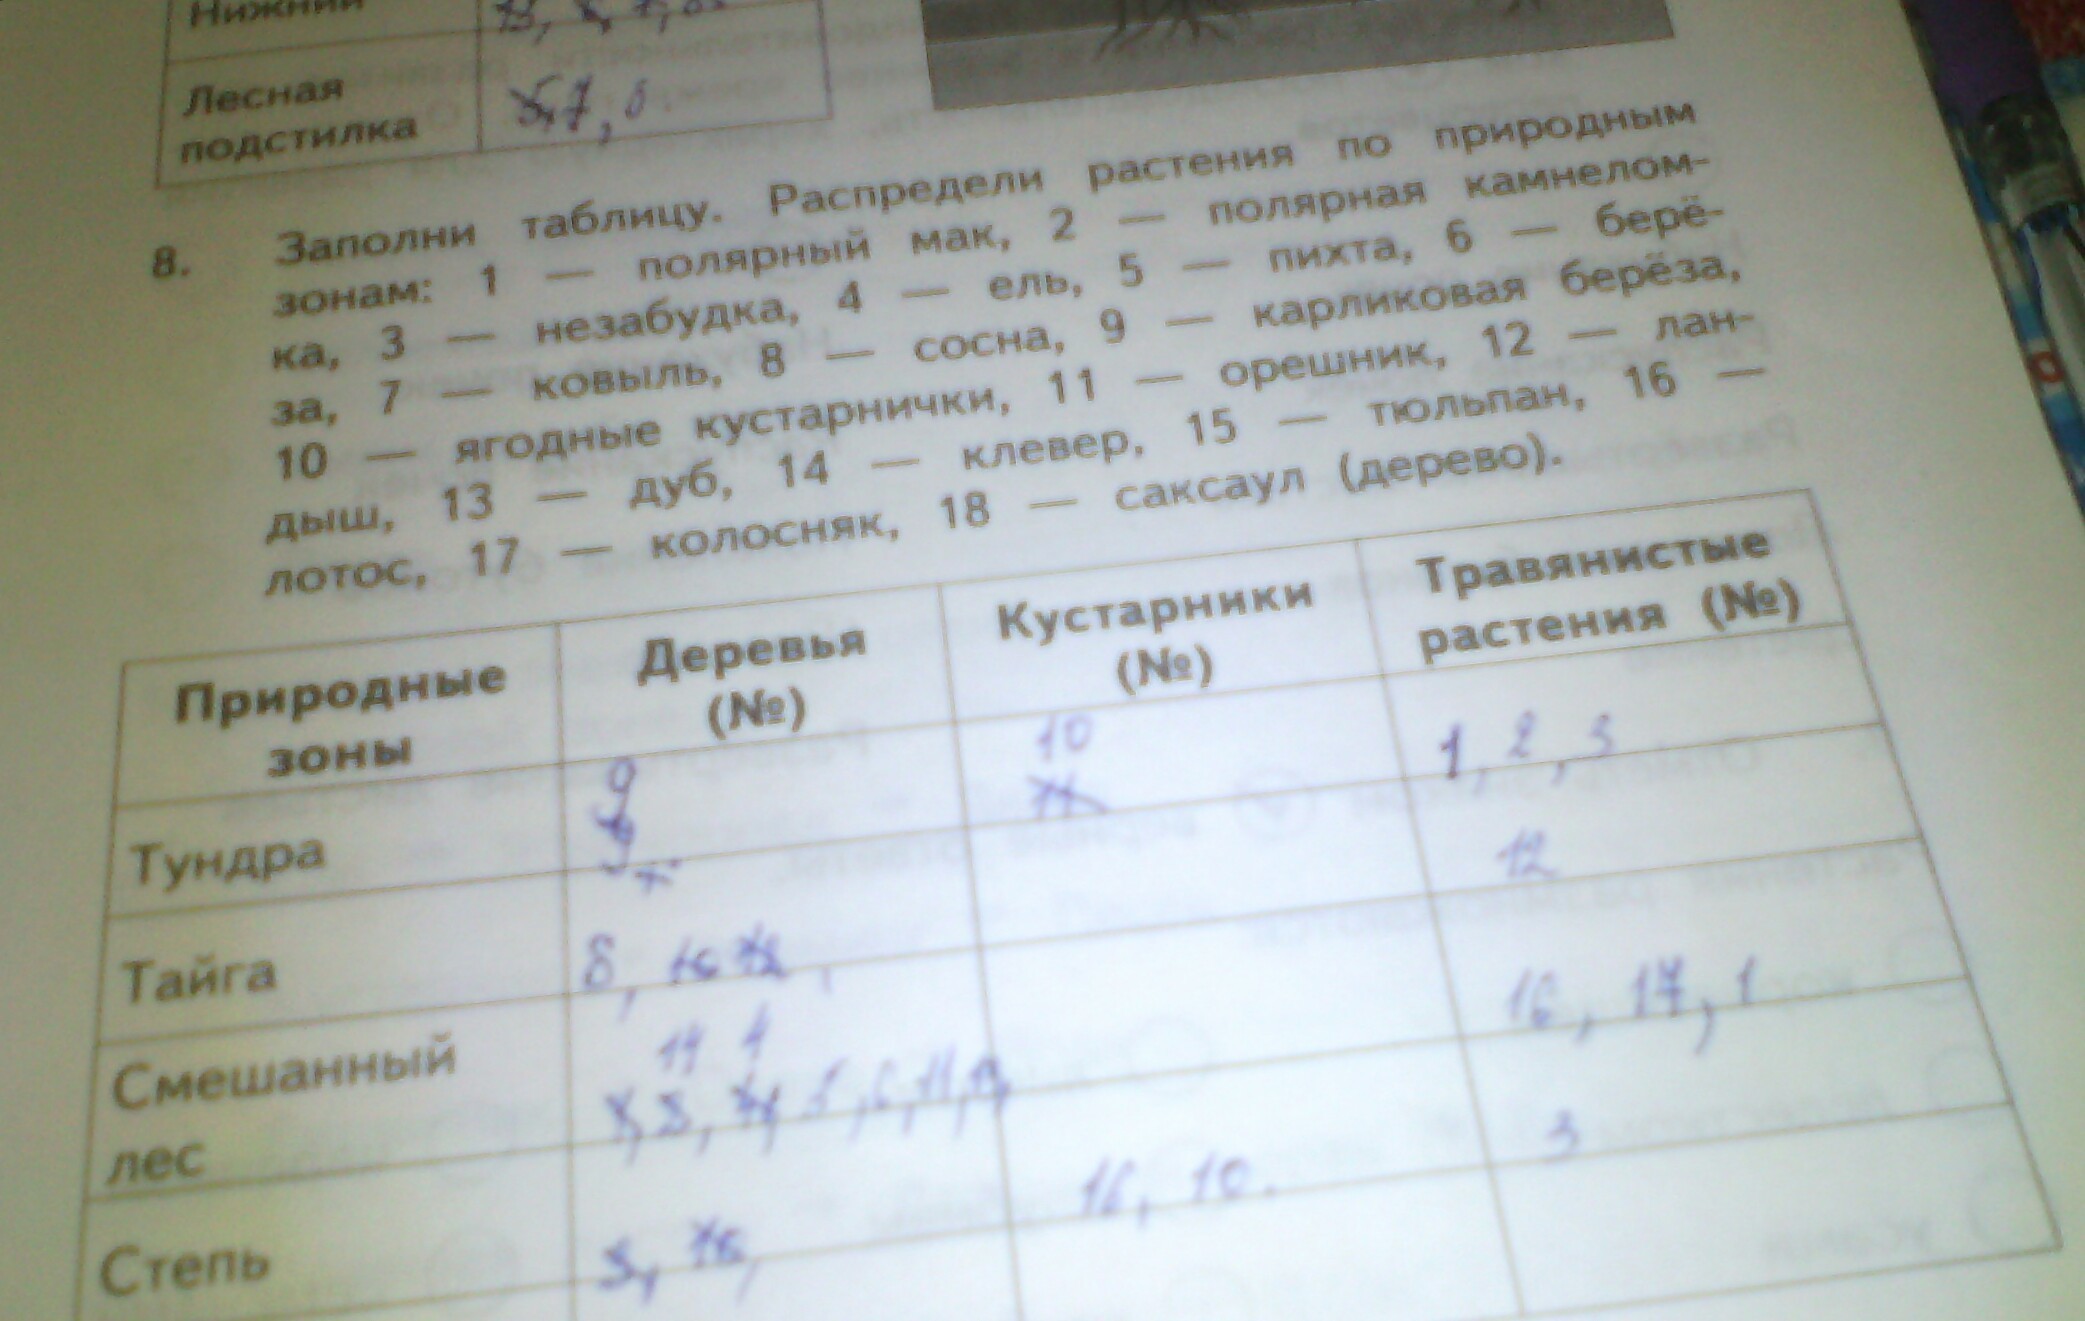 Нижний
Лесная
подстилка
8. Заполни таблицу. Распредели растения по природным
зонам: 1 — полярный мак, 2 — полярная камнелом-
ка, 3 — незабудка, 4 — ель, 5 — пихта, 6 — берё-
за, 7 — ковыль, 8 — сосна, 9 — карликовая берёза,
10 — ягодные кустарнички, 11 — орешник, 12 — лан-
дыш, 13 — дуб, 14 — клевер, 15 — тюльпан, 16 —
лотос, 17 — колосняк, 18 — саксаул (дерево).
Природные зоны
Деревья (№)
Кустарники (№)
Травянистые растения (№)
Тундра
9
10
1, 2, 3
Тайга
8,
12
Смешанный лес
16, 17, 1
Степь
16, 10.
3